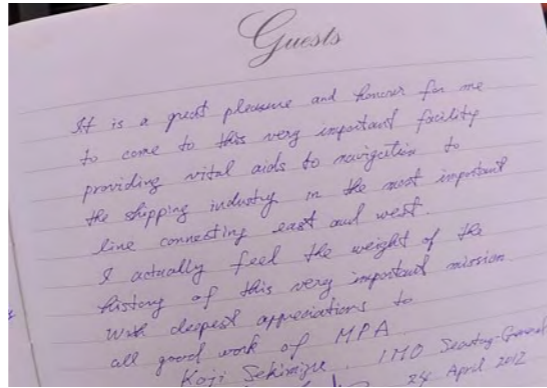 Guests
It is a great pleasure and honour for me
to come to this very important facility
providing vital aids to navigation to
the shipping industry in the most important
line connecting east and west.
I actually feel the weight of the
history of this very important mission
With deepest appreciations to
all good work of MPA.
Koji Sekimizu, IMO Secretary-General
April 2012